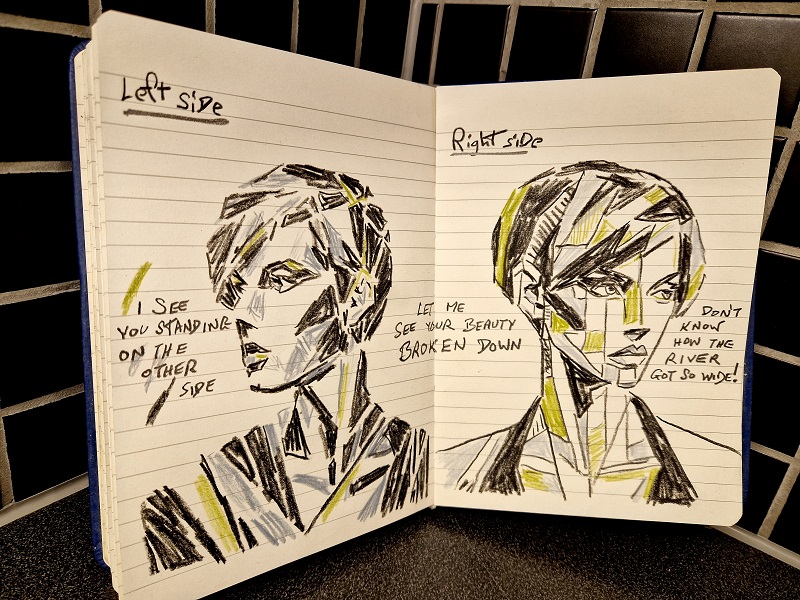 Left side
I SEE
YOU STANDING
ON THE
OTHER
SIDE
Right side
LET ME
SEE YOUR BEAUTY
BROKEN DOWN
DON'T
KNOW
HOW THE
RIVER
GOT SO WIDE!